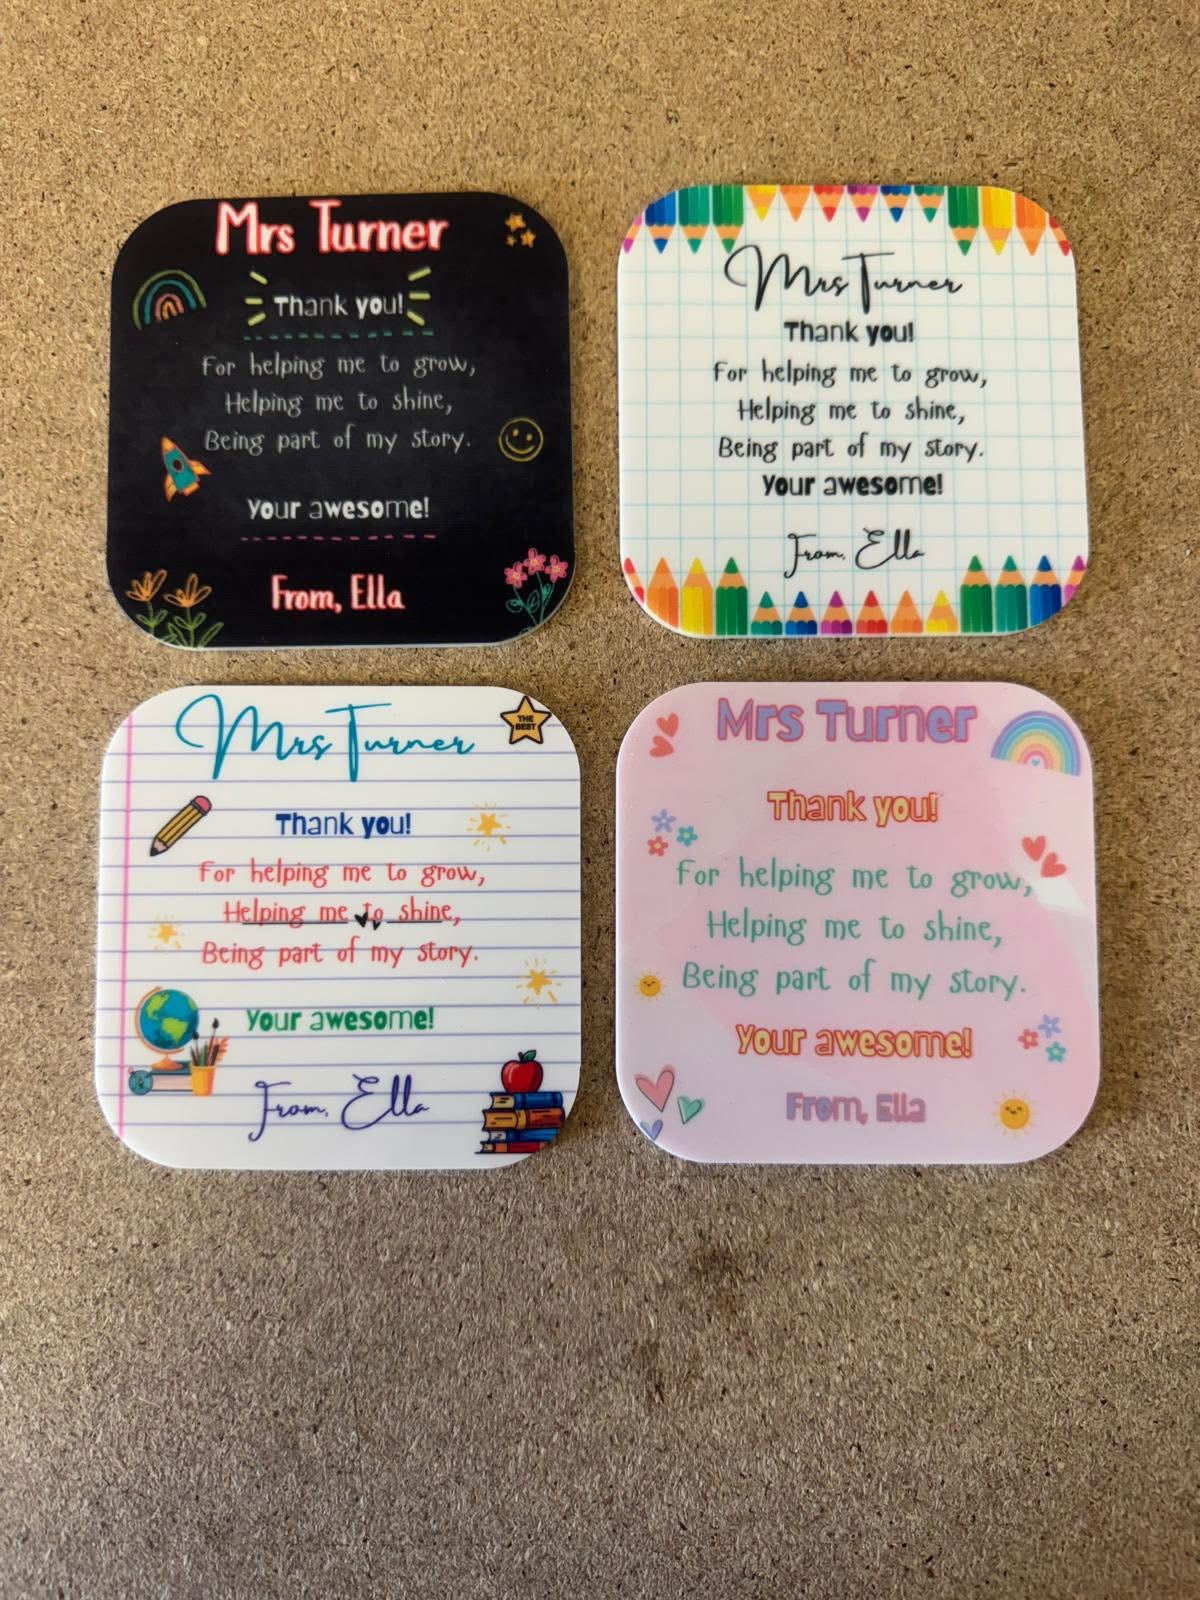 Mrs Turner
Thank you!
For helping me to grow,
Helping me to shine,
Being part of my story.
Your awesome!
From, Ella
Mrs Turner
Thank you!
For helping me to grow,
Helping me to shine,
Being part of my story.
Your awesome!
From, Ella
Mrs Turner
THE
BEST
Thank you!
For helping me to grow,
Helping me to shine,
Being part of my story.
Your awesome!
From, Ella
Mrs Turner
Thank you!
For helping me to grow,
Helping me to shine,
Being part of my story.
Your awesome!
From, Ella